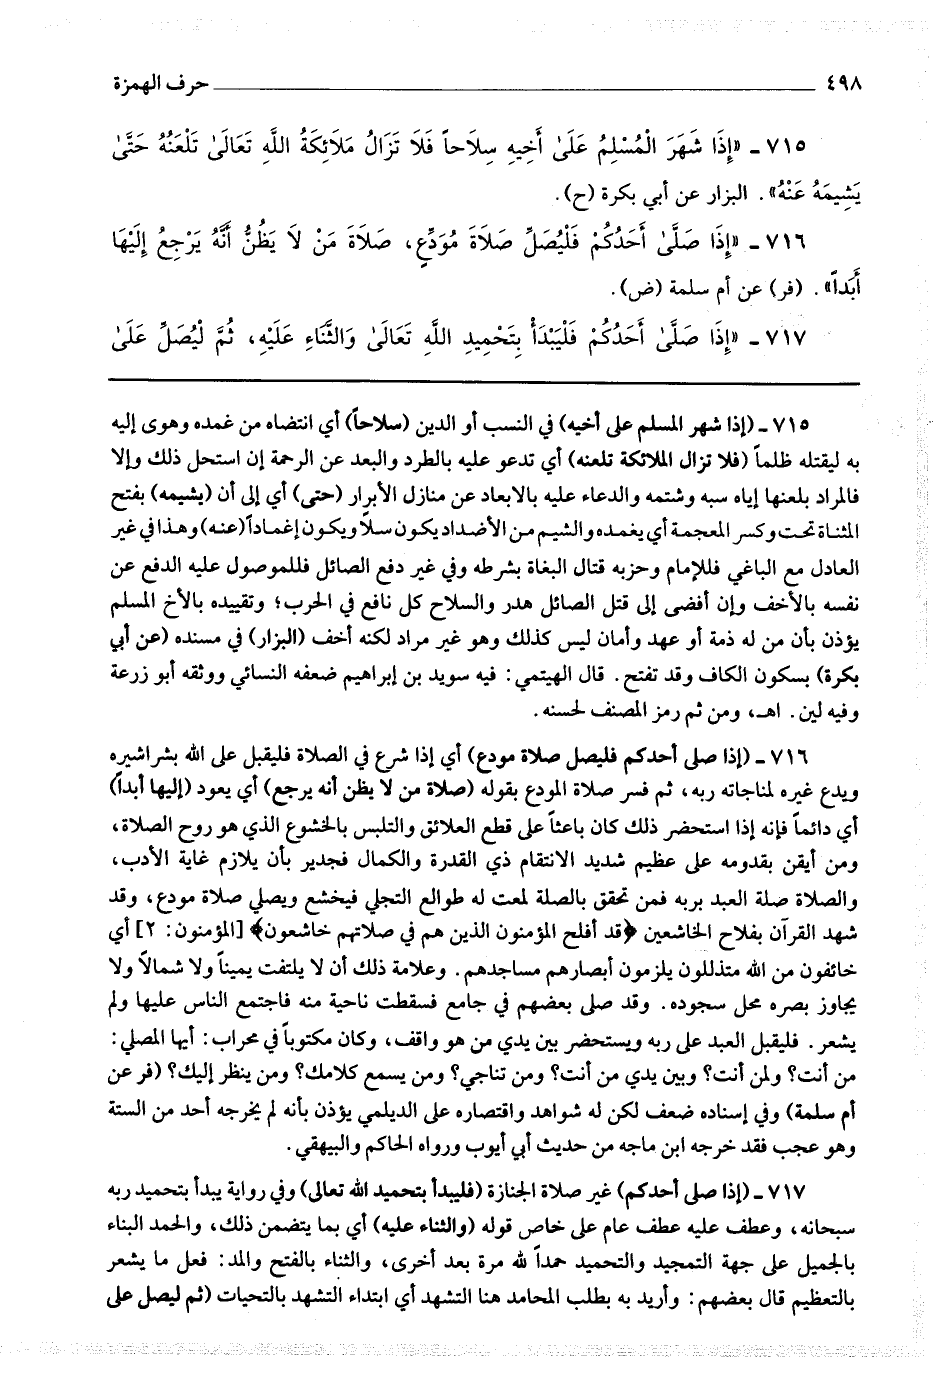 ٤٩٨ حرف الهمزة
٧١٥ ـ «إِذَا شَهَرَ الْمُسْلِمُ عَلَىٰ أَخِيهِ سِلَاحاً فَلَا تَزَالُ مَلَائِكَةُ اللَّهِ تَعَالَىٰ تَلْعَنُهُ حَتَّىٰ
يَشِيمَهُ عَنْهُ». البزار عن أبي بكرة (ح).
٧١٦ ـ «إِذَا صَلَّىٰ أَحَدُكُمْ فَلْيُصَلِّ صَلَاةَ مُوَدِّعٍ، صَلَاةَ مَنْ لَا يَظُنُّ أَنَّهُ يَرْجِعُ إِلَيْهَا
أَبَداً». (فر) عن أم سلمة (ض).
٧١٧ ـ «إِذَا صَلَّىٰ أَحَدُكُمْ فَلْيَبْدَأْ بِتَحْمِيدِ اللَّهِ تَعَالَىٰ وَالثَّنَاءِ عَلَيْهِ، ثُمَّ لْيُصَلِّ عَلَىٰ
٧١٥ ـ (إذا شهر المسلم على أخيه) في النسب أو الدين (سلاحاً) أي انتضاه من غمده وهوى إليه
به ليقتله ظلماً (فلا تزال الملائكة تلعنه) أي تدعو عليه بالطرد والبعد عن الرحمة إن استحل ذلك وإلا
فالمراد بلعنها إياه سبه وشتمه والدعاء عليه بالابعاد عن منازل الأبرار (حتى) أي إلى أن (يشيمه) بفتح
المثناة تحت وكسر المعجمة أي يغمده والشيم من الأضداد يكون سلاً ويكون إغماداً (عنه) وهذا في غير
العادل مع الباغي فللإمام وحزبه قتال البغاة بشرطه وفي غير دفع الصائل فللموصول عليه الدفع عن
نفسه بالأخف وإن أفضى إلى قتل الصائل هدر والسلاح كل نافع في الحرب؛ وتقييده بالأخ المسلم
يؤذن بأن من له ذمة أو عهد وأمان ليس كذلك وهو غير مراد لكنه أخف (البزار) في مسنده (عن أبي
بكرة) بسكون الكاف وقد تفتح. قال الهيتمي: فيه سويد بن إبراهيم ضعفه النسائي ووثقه أبو زرعة
وفيه لين. اهـ، ومن ثم رمز المصنف لحسنه.
٧١٦ ـ (إذا صلى أحدكم فليصل صلاة مودع) أي إذا شرع في الصلاة فليقبل على الله بشراشيره
ويدع غيره لمناجاته ربه، ثم فسر صلاة المودع بقوله (صلاة من لا يظن أنه يرجع) أي يعود (إليها أبداً)
أي دائماً فإنه إذا استحضر ذلك كان باعثاً على قطع العلائق والتلبس بالخشوع الذي هو روح الصلاة،
ومن أيقن بقدومه على عظيم شديد الانتقام ذي القدرة والكمال فجدير بأن يلازم غاية الأدب،
والصلاة صلة العبد بربه فمن تحقق بالصلة لمعت له طوالع التجلي فيخشع ويصلي صلاة مودع، وقد
شهد القرآن بفلاح الخاشعين ﴿قد أفلح المؤمنون الذين هم في صلاتهم خاشعون﴾ [المؤمنون: ٢] أي
خائفون من الله متذللون يلزمون أبصارهم مساجدهم. وعلامة ذلك أن لا يلتفت يميناً ولا شمالاً ولا
يجاوز بصره محل سجوده. وقد صلى بعضهم في جامع فسقطت ناحية منه فاجتمع الناس عليها ولم
يشعر. فليقبل العبد على ربه ويستحضر بين يدي من هو واقف، وكان مكتوباً في محراب: أيها المصلي:
من أنت؟ ولمن أنت؟ وبين يدي من أنت؟ ومن تناجي؟ ومن يسمع كلامك؟ ومن ينظر إليك؟ (فر عن
أم سلمة) وفي إسناده ضعف لكن له شواهد واقتصاره على الديلمي يؤذن بأنه لم يخرجه أحد من الستة
وهو عجب فقد خرجه ابن ماجه من حديث أبي أيوب ورواه الحاكم والبيهقي.
٧١٧ ـ (إذا صلى أحدكم) غير صلاة الجنازة (فليبدأ بتحميد الله تعالى) وفي رواية يبدأ بتحميد ربه
سبحانه، وعطف عليه عطف عام على خاص قوله (والثناء عليه) أي بما يتضمن ذلك، والحمد البناء
بالجميل على جهة التمجيد والتحميد حمداً لله مرة بعد أخرى، والثناء بالفتح والمد: فعل ما يشعر
بالتعظيم قال بعضهم: وأريد به بطلب المحامد هنا التشهد أي ابتداء التشهد بالتحيات (ثم ليصل على